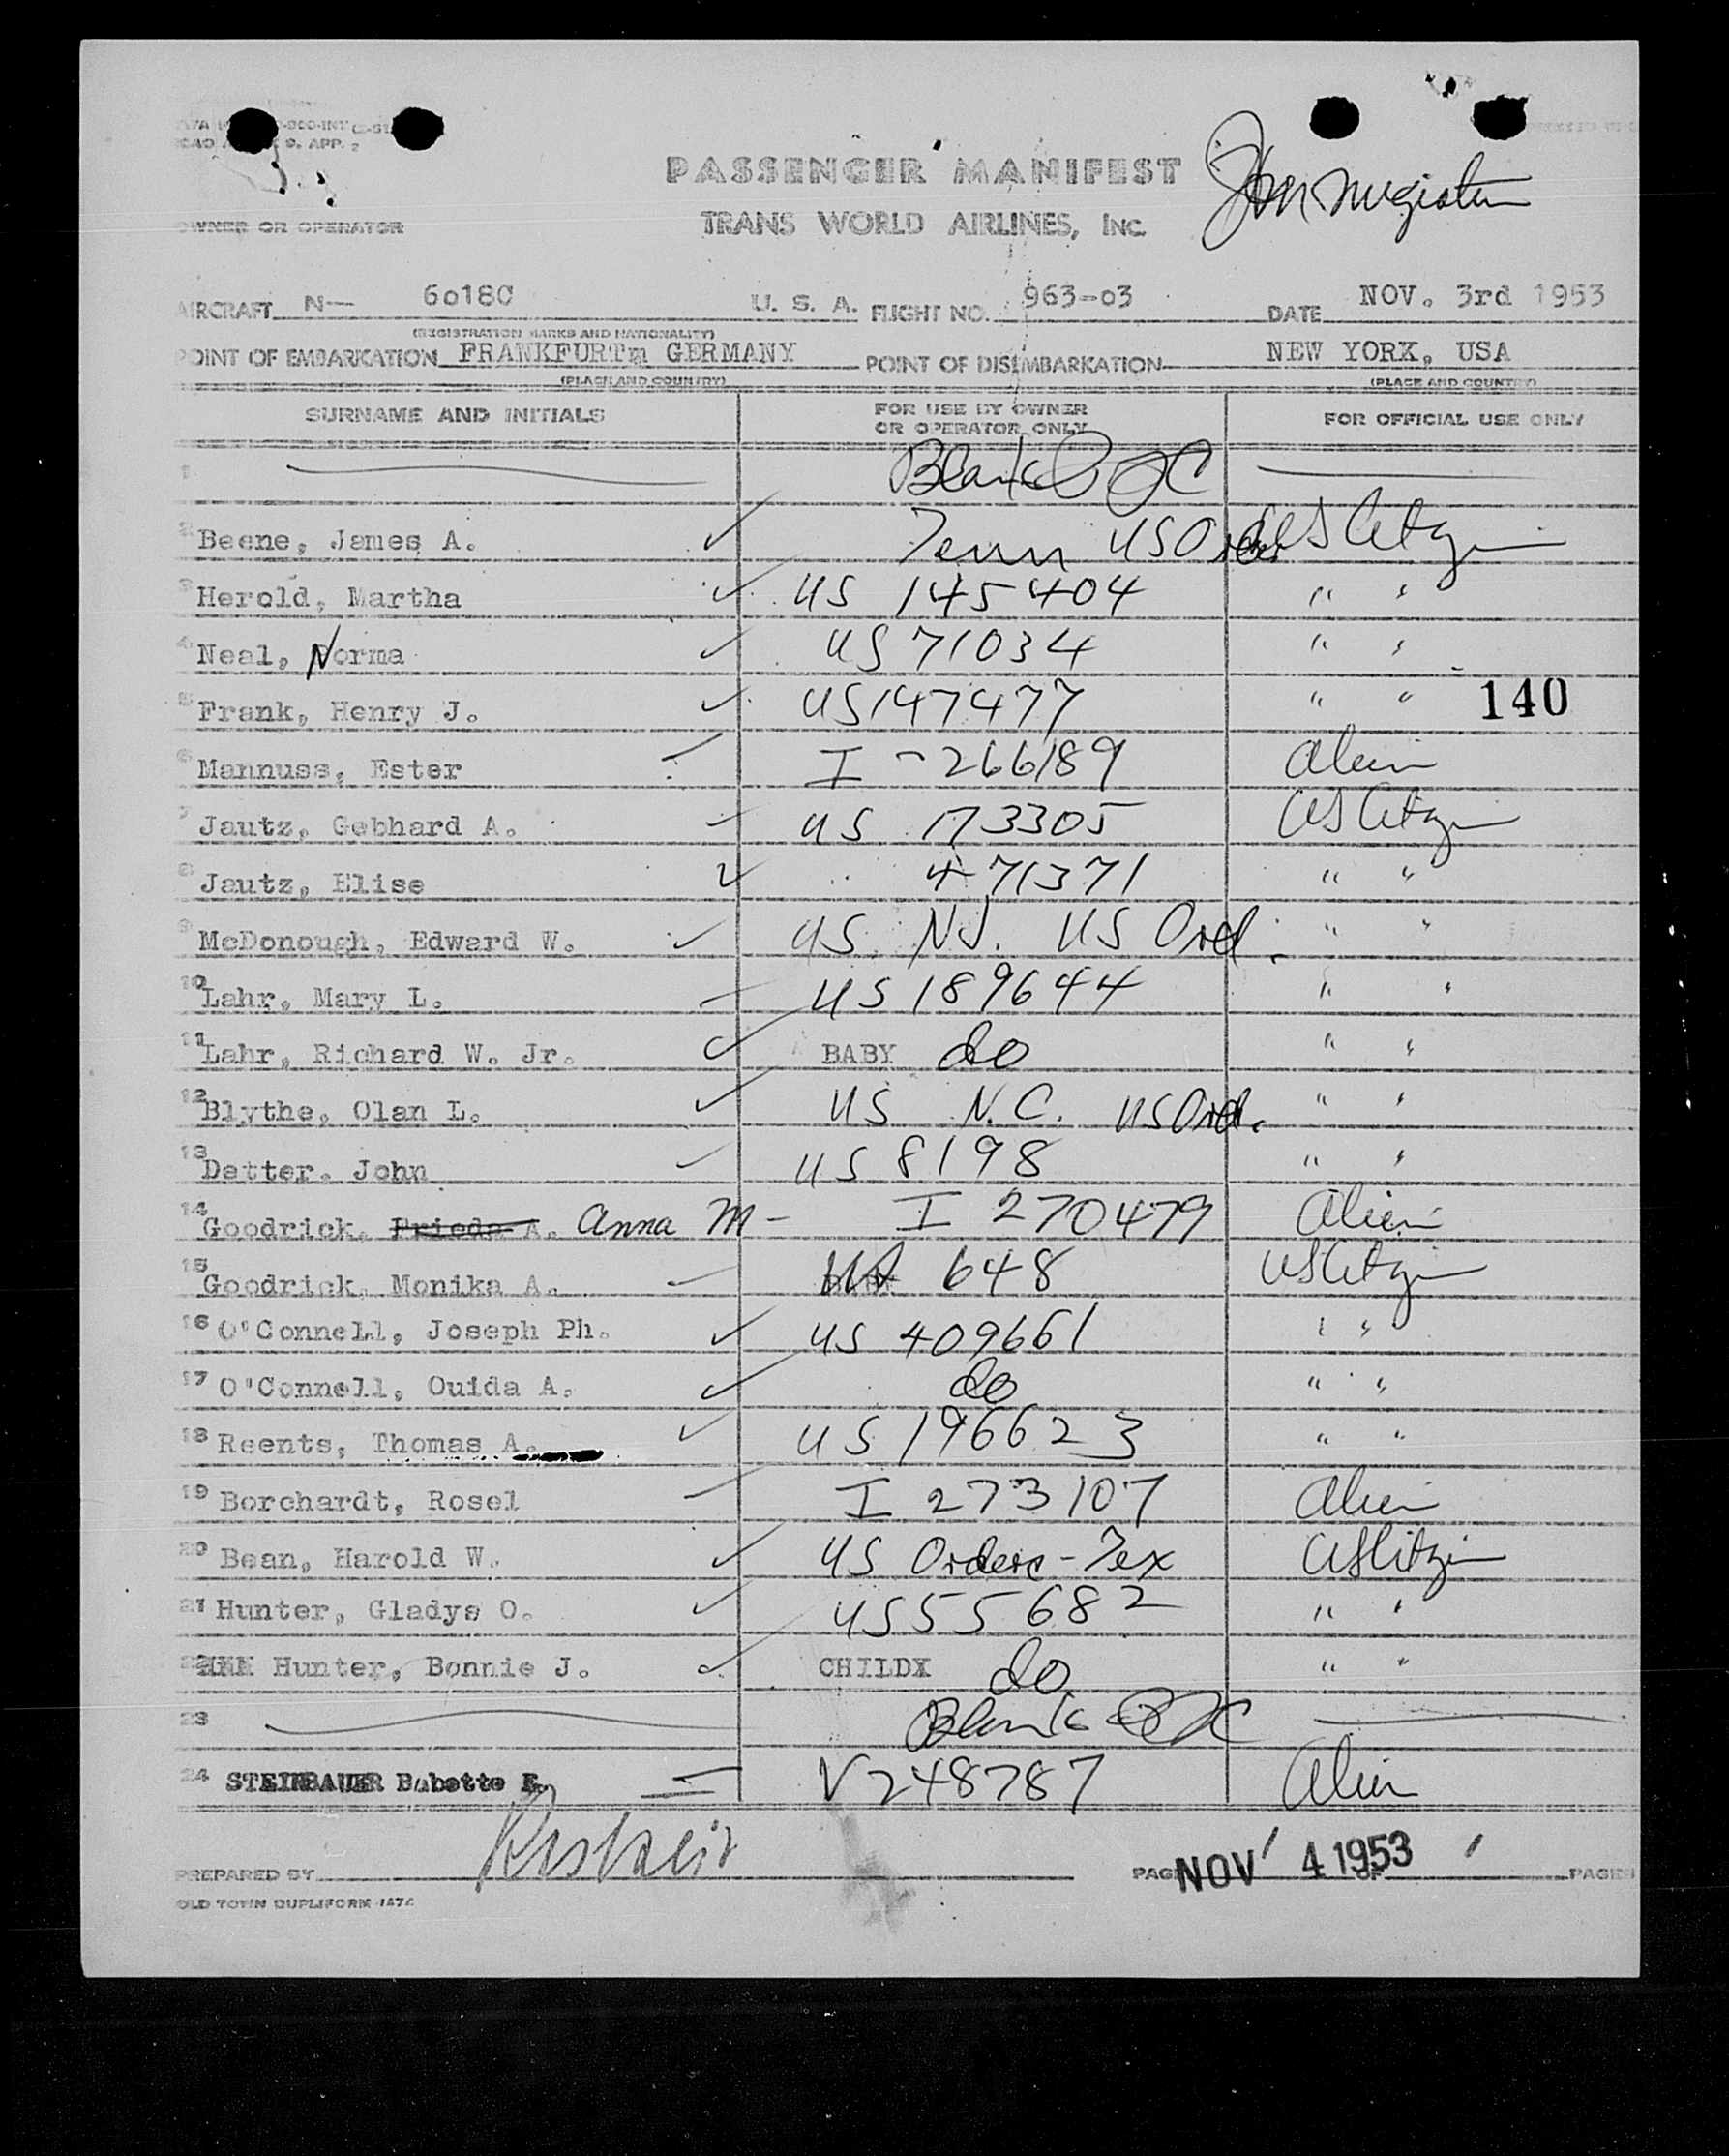 9. APP.
PASSENGER MANIFEST
OWNER OR OPERATOR TRANS WORLD AIRLINES, INC.
AIRCRAFT N— 6o18C U. S. A. FLIGHT NO. 963-o3 DATE NOV. 3rd 1953
(REGISTRATION MARKS AND NATIONALITY)
POINT OF EMBARKATION FRANKFURTm GERMANY POINT OF DISEMBARKATION NEW YORK, USA
(PLACE AND COUNTRY) (PLACE AND COUNTRY)
SURNAME AND INITIALS FOR USE BY OWNER OR OPERATOR ONLY FOR OFFICIAL USE ONLY
1 Blank
2 Beene, James A. Tenn US Orders US Citizen
3 Herold, Martha US 145404 " "
4 Neal, Norma US 71034 " "
5 Frank, Henry J. US 147477 " " 140
6 Mannuss, Ester I-266189 Alien
7 Jautz, Gebhard A. US 173305 US Citizen
8 Jautz, Elise 471371 " "
9 McDonough, Edward W. US NJ. US Ord. " "
10 Lahr, Mary L. US 189644 " "
11 Lahr, Richard W. Jr. BABY do " "
12 Blythe, Olan L. US N.C. US Ord. " "
13 Detter. John US 8198 " "
14 Goodrick, Frieda A. Anna M- I 270479 Alien
15 Goodrick, Monika A. 648 US Citizen
16 O'Connell, Joseph Ph. US 409661 " "
17 O'Connell, Ouida A. do " "
18 Reents, Thomas A. US 196623 " "
19 Borchardt, Rosel I 273107 Alien
20 Bean, Harold W. US Orders - Tex US Citizen
21 Hunter, Gladys O. US 55682 " "
22 Hunter, Bonnie J. CHILDX do " "
23 Blank
24 STEINBAUER Babette E. V248787 Alien
PREPARED BY PAGE NOV 4 1953 OF PAGES
OLD TOWN DUPLIFORM 1474